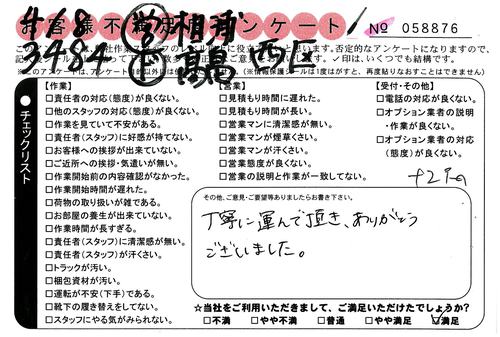 お客様不満足度アンケート
No 058876
4/18 営 相浦
3484 高畠 西区
チェックリスト
【作業】
□責任者の対応（態度）が良くない。
□他のスタッフの対応（態度）が良くない。
□作業を見ていて不安がある。
□責任者（スタッフ）に好感が持てない。
□お客様への挨拶が出来ていない。
□ご近所への挨拶・気遣いが無い。
□作業開始前の内容確認がなかった。
□作業開始時間が遅れた。
□荷物の取り扱いが雑である。
□お部屋の養生が出来ていない。
□作業時間が長すぎる。
□責任者（スタッフ）に清潔感が無い。
□責任者（スタッフ）が汗くさい。
□トラックが汚い。
□梱包資材が汚い。
□運転が不安（下手）である。
□靴下の履き替えをしてない。
□スタッフにやる気がみられない。
【営業】
□見積もり時間に遅れた。
□見積もり時間が長い。
□営業マンに清潔感が無い。
□営業マンが煙草くさい。
□営業マンが汗くさい。
□営業態度が良くない。
□営業の説明と作業が一致してない。
【受付・その他】
□電話の対応が良くない。
□オプション業者の説明
・作業が良くない。
□オプション業者の対応
（態度）が良くない。
その他、ご意見・ご要望等ありましたらお書き下さい。
丁寧に運んで頂き、ありがとう
ございました。
☆当社をご利用いただきまして、ご満足いただけたでしょうか？
□不満 □やや不満 □普通 □やや満足 ☑満足